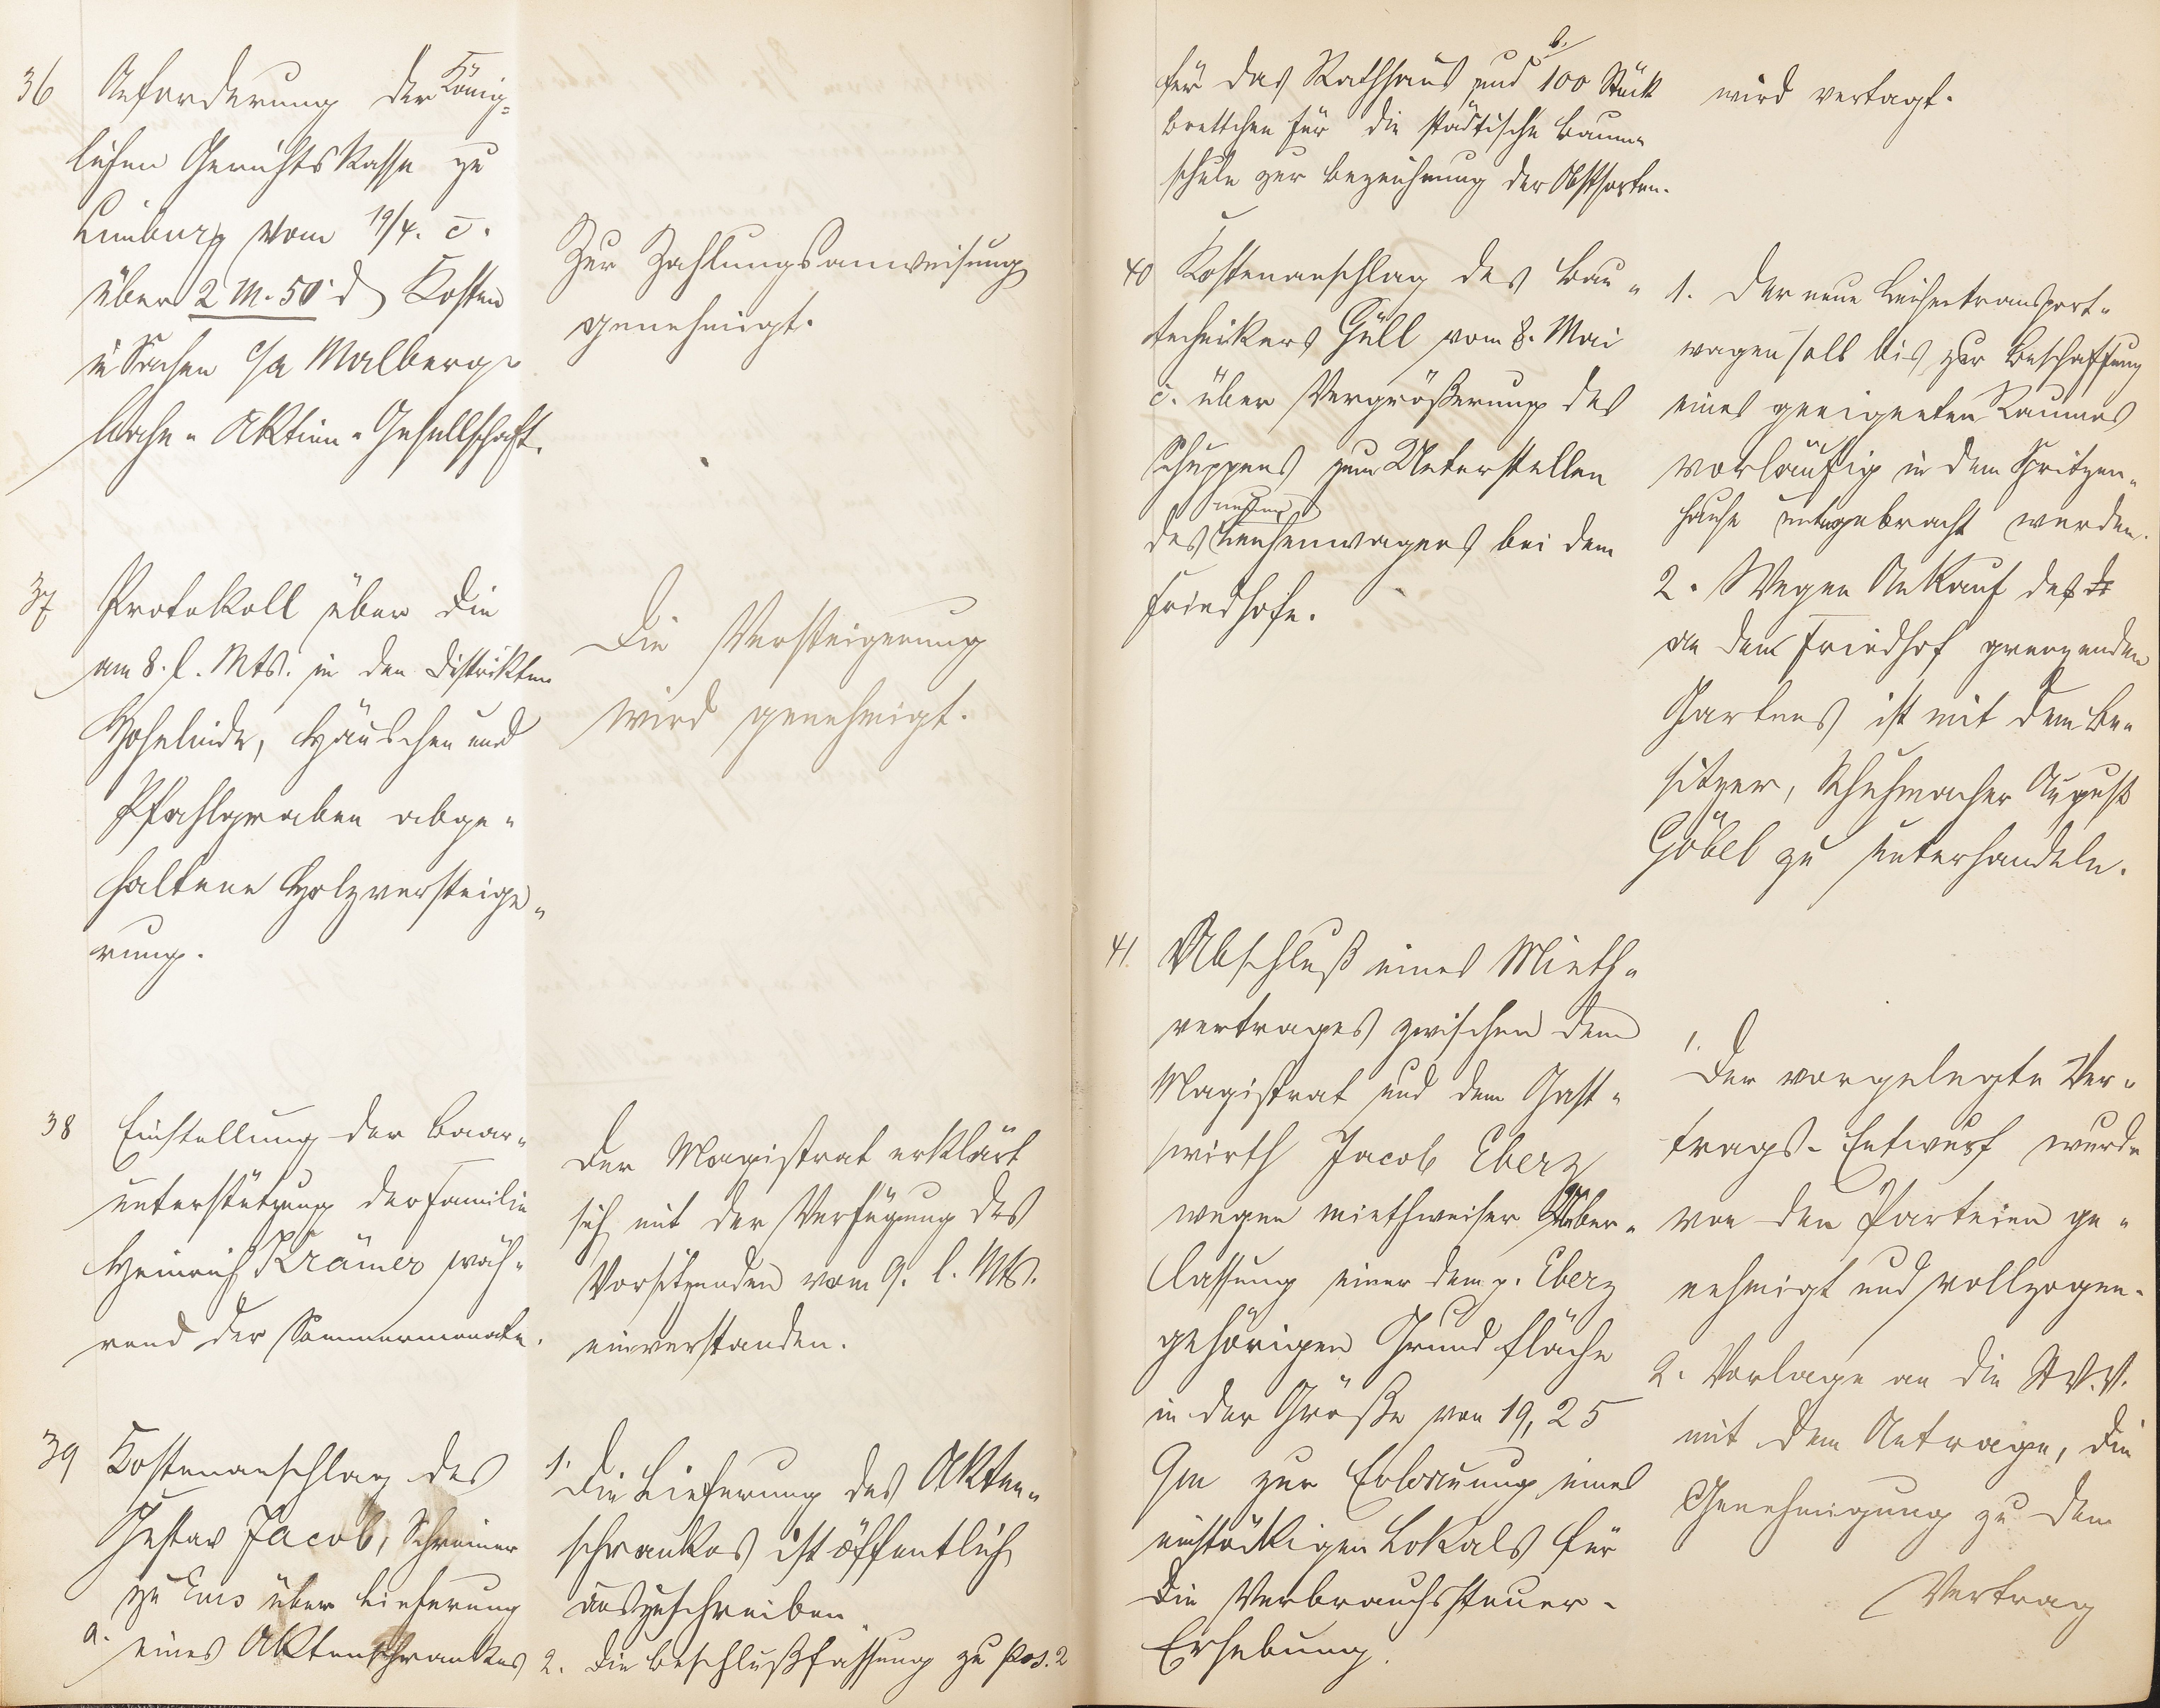 36 Anforderung der König-
lichen Gerichtskasse zu
Limburg vom 19/4. c.
über 2 M. 50 d Kosten
in Sachen c/a Malberg-
bahn-Aktien-Gesellschaft.
Zur Zahlungsanweisung
genehmigt.
37 Protokoll über die
am 8. l. Mts. in den Distrikten
Hohelinde, Häuschen und
Pfahlgraben abge-
haltene Holzversteige-
rung.
Die Versteigerung
wird genehmigt.
38 Einstellung der Baar-
unterstützung der Familie
Heinrich Krämer wäh-
rend der Sommermonate.
Der Magistrat erklärt
sich mit der Verfügung des
Vorsitzenden vom 9. l. Mts.
einverstanden.
39 Kostenanschlag des
Gustav Jacob, Schreiner
zu Ems über Lieferung
a. eines Aktenschrankes
1. Die Lieferung des Akten-
schrankes ist öffentlich
auszuschreiben.
2. Die Beschlußfassung zu Pos. 2
für das Rathhaus und b. 100 Stück
Brettchen für die städtische Baum-
schule zur Bezeichnung der Obstsorten.
wird vertagt.
40 Kostenanschlag des Bau-
technikers Güll vom 8. Mai
c. über Vergrößerung des
Schuppens zum Unterstellen
des neuen Leichenwagens bei dem
Friedhofe.
1. Der neue Leichentransport-
wagen soll bis zur Beschaffung
eines geeigneten Raumes
vorläufig in dem Spritzen-
hause untergebracht werden.
2. Wegen Ankauf des
an dem Friedhof grenzenden
Gartens ist mit dem Be-
sitzer, Schuhmacher August
Göbel zu unterhandeln.
41. Abschluß eines Mieth-
vertrages zwischen dem
Magistrat und dem Gast-
wirth Jacob Eberz
wegen miethweiser Ueber-
lassung einer dem p. Eberz
gehörigen Grundfläche
in der Größe von 19,25
Qm zur Erbauung eines
einstöckigen Lokals für
die Verbrauchssteuer-
Erhebung.
1. Der vorgelegte Ver-
trags-Entwurf wurde
von den Parteien ge-
nehmigt und vollzogen.
2. Vorlage an die St.V.V.
mit dem Antrage, die
Genehmigung zu dem
Vertrag